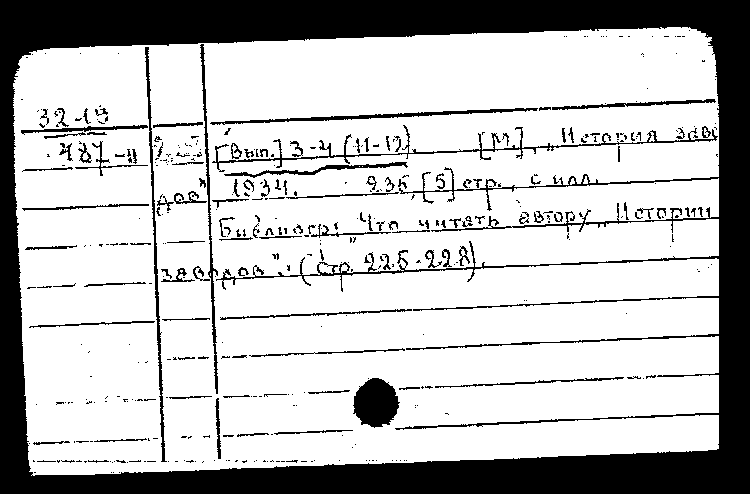 32-19
487-11 [Вып.] 3-4 (11-12). [М.], „История заво
дов", 1934. 236, [5] стр., с илл.
Библиогр: „Что читать автору „Истории
заводов".. (стр. 225-228).